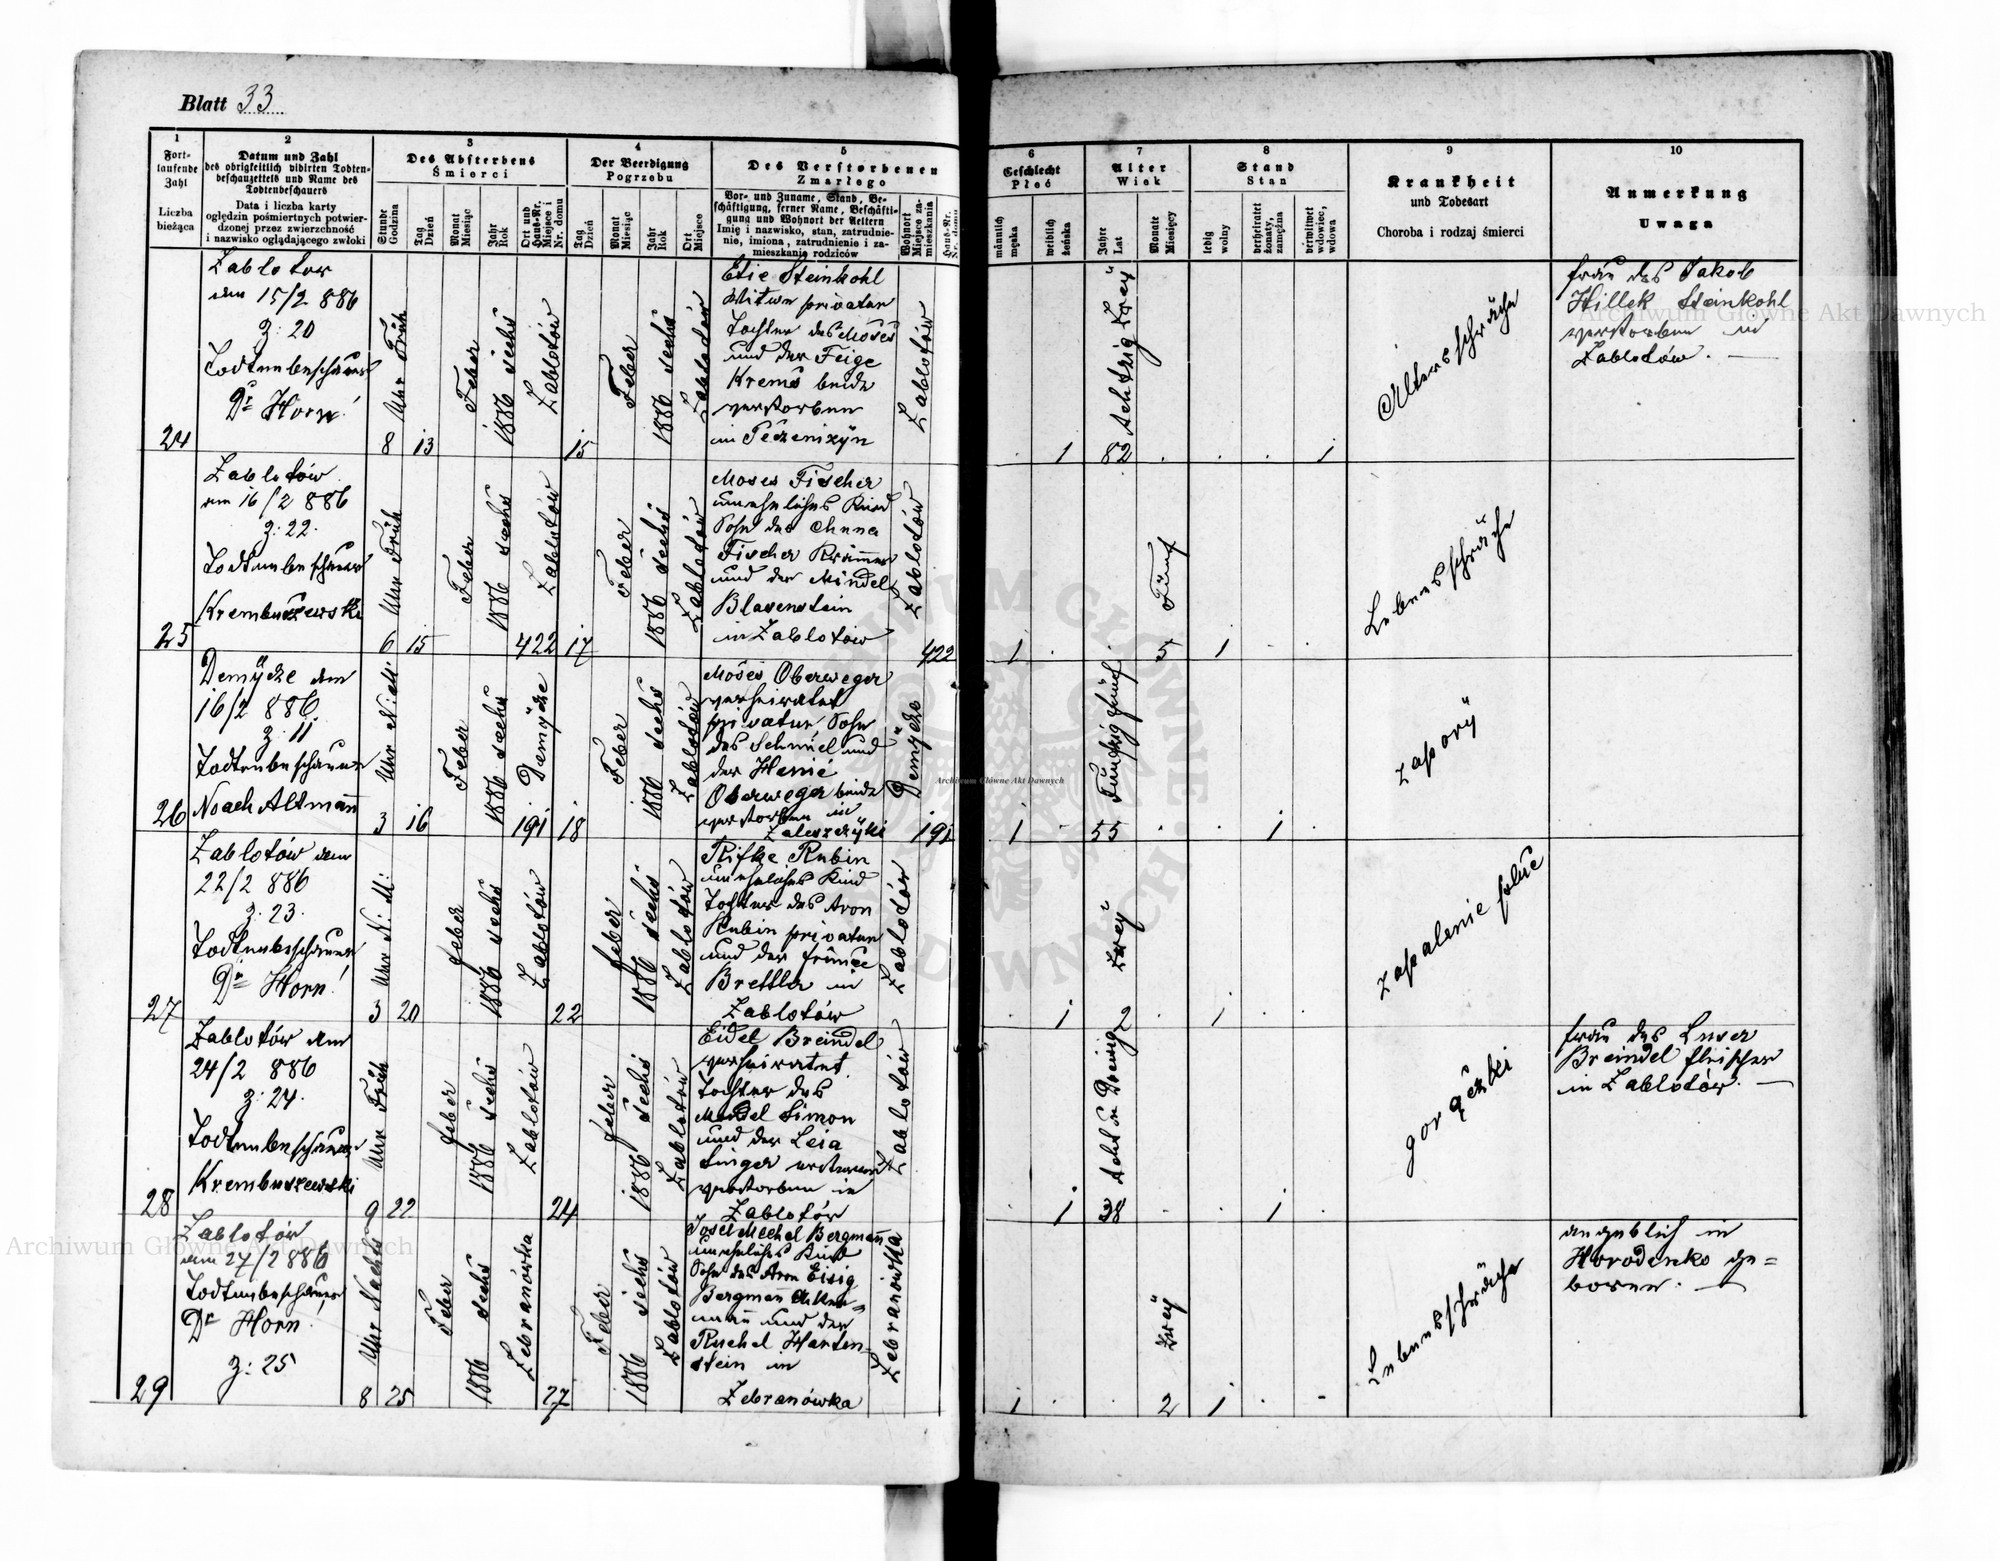 Blatt 33
1
Fort-
laufende
Zahl
Liczba
bieżąca
2
Datum und Zahl
des obrigkeitlich vidirten Todten-
beschauzettels und Name des
Todtenbeschauers
Data i liczba karty
oględzin pośmiertnych potwier-
dzonej przez zwierzchność
i nazwisko oglądającego zwłoki
3
Des Absterbens
Śmierci
Stunde
Godzina
Tag
Dzień
Monat
Miesiąc
Jahr
Rok
Ort und
Haus-Nr.
Miejsce i
Nr. domu
4
Der Beerdigung
Pogrzebu
Tag
Dzień
Monat
Miesiąc
Jahr
Rok
Ort
Miejsce
5
Des Verstorbenen
Zmarłego
Vor- und Zuname, Stand, Be-
schäftigung, ferner Name, Beschäfti-
gung und Wohnort der Aeltern
Imię i nazwisko, stan, zatrudnie-
nie, imiona, zatrudnienie i za-
mieszkanie rodziców
Wohnort
Miejsce za-
mieszkania
Haus-Nr.
Nr. domu
6
Geschlecht
Płeć
männlich
męska
weiblich
żeńska
7
Alter
Wiek
Jahre
Lat
Monate
Miesięcy
8
Stand
Stan
ledig
wolny
verheiratet
żonaty,
zamężna
verwitwet
wdowiec,
wdowa
9
Krankheit
und Todesart
Choroba i rodzaj śmierci
10
Anmerkung
Uwaga
24
Zablotow
am 15/2 886
Z: 20
Todtenbeschauer
Dr Horn
8 Uhr Früh
13
Feber
1886 sechs
Zablotów
15
Feber
1886 sechs
Zablotów
Etie Steinkohl
Witwe private
Tochter des Moses
und der Feige
Krems beide
verstorben
in Peczenizyn
Zablotów
1
82 Achtzig Zwey
1
Altersschwäche
Frau des Jakob
Hillek Steinkohl
verstorben in
Zablotów.
25
Zablotów
am 16/2 886
Z: 22.
Todtenbeschauer
Krembuszewski
6 Uhr Früh
15
Feber
1886 sechs
Zablotów
422
17
Feber
1886 sechs
Zablotów
Moses Fischer
unehliches Kind
Sohn des Chuna
Fischer Krämmer
und der Mindel
Blasenstein
in Zablotów
Zablotów
422
1
5 Fünf
1
Lebensschwäche
26
Demycze den
16/2 886
Z: 11
Todtenbeschauer
Noach Altmann
3 Uhr N: M:
16
Feber
1886 sechs
Demycze
191
18
Feber
1886 sechs
Zablotów
Moses Oberweger
verheiratet
private Sohn
des Schmiel und
der Henie
Oberweger beide
verstorben in
Zaleszczyki
Demycze
191
1
55 Fünfzig fünf
1
zapory
27
Zablotów den
22/2 886
Z: 23.
Todtenbeschauer
Dr Horn
3 Uhr N: M:
20
feber
1886 sechs
Zablotów
22
feber
1886 sechs
Zablotów
Rifke Rubin
unehliches Kind
Tochter des Aron
Rubin private
und der Frimce
Brettler in
Zablotów
Zablotów
1
2 Zwey
1
zapalenie płuc
28
Zablotów am
24/2 886
Z: 24.
Todtenbeschauer
Krembuszewski
9 Uhr Früh
22
feber
1886 sechs
Zablotów
24
feber
1886 sechs
Zablotów
Eidel Breindel
verheiratet
Tochter des
Mendel Simon
und der Leia
Singer
verstorben in
Zablotów
Zablotów
1
38 Acht u Dreisig
1
gorączki
Frau des Luser
Breindel Fleischer
in Zablotów.
29
Zablotów
am 27/2 886
Todtenbeschauer
Dr Horn
Z: 25
8 Uhr Nachts
25
Feber
1886 sechs
Zebranówka
27
Feber
1886 sechs
Zablotów
Josel Mechel Bergmann
unehliches Kind
Sohn des Aron Eisig
Bergmann Acker=
mann und der
Ruchel Harten-
stein in
Zebranówka
Zebranówka
1
2 Zwey
1
Lebensschwäche
angeblich in
Horodenko ge=
boren.
Archiwum Główne Akt Dawnych
Archiwum Główne Akt Dawnych
Archiwum Główne Akt Dawnych
ARCHIWUM GŁÓWNE AKT DAWNYCH